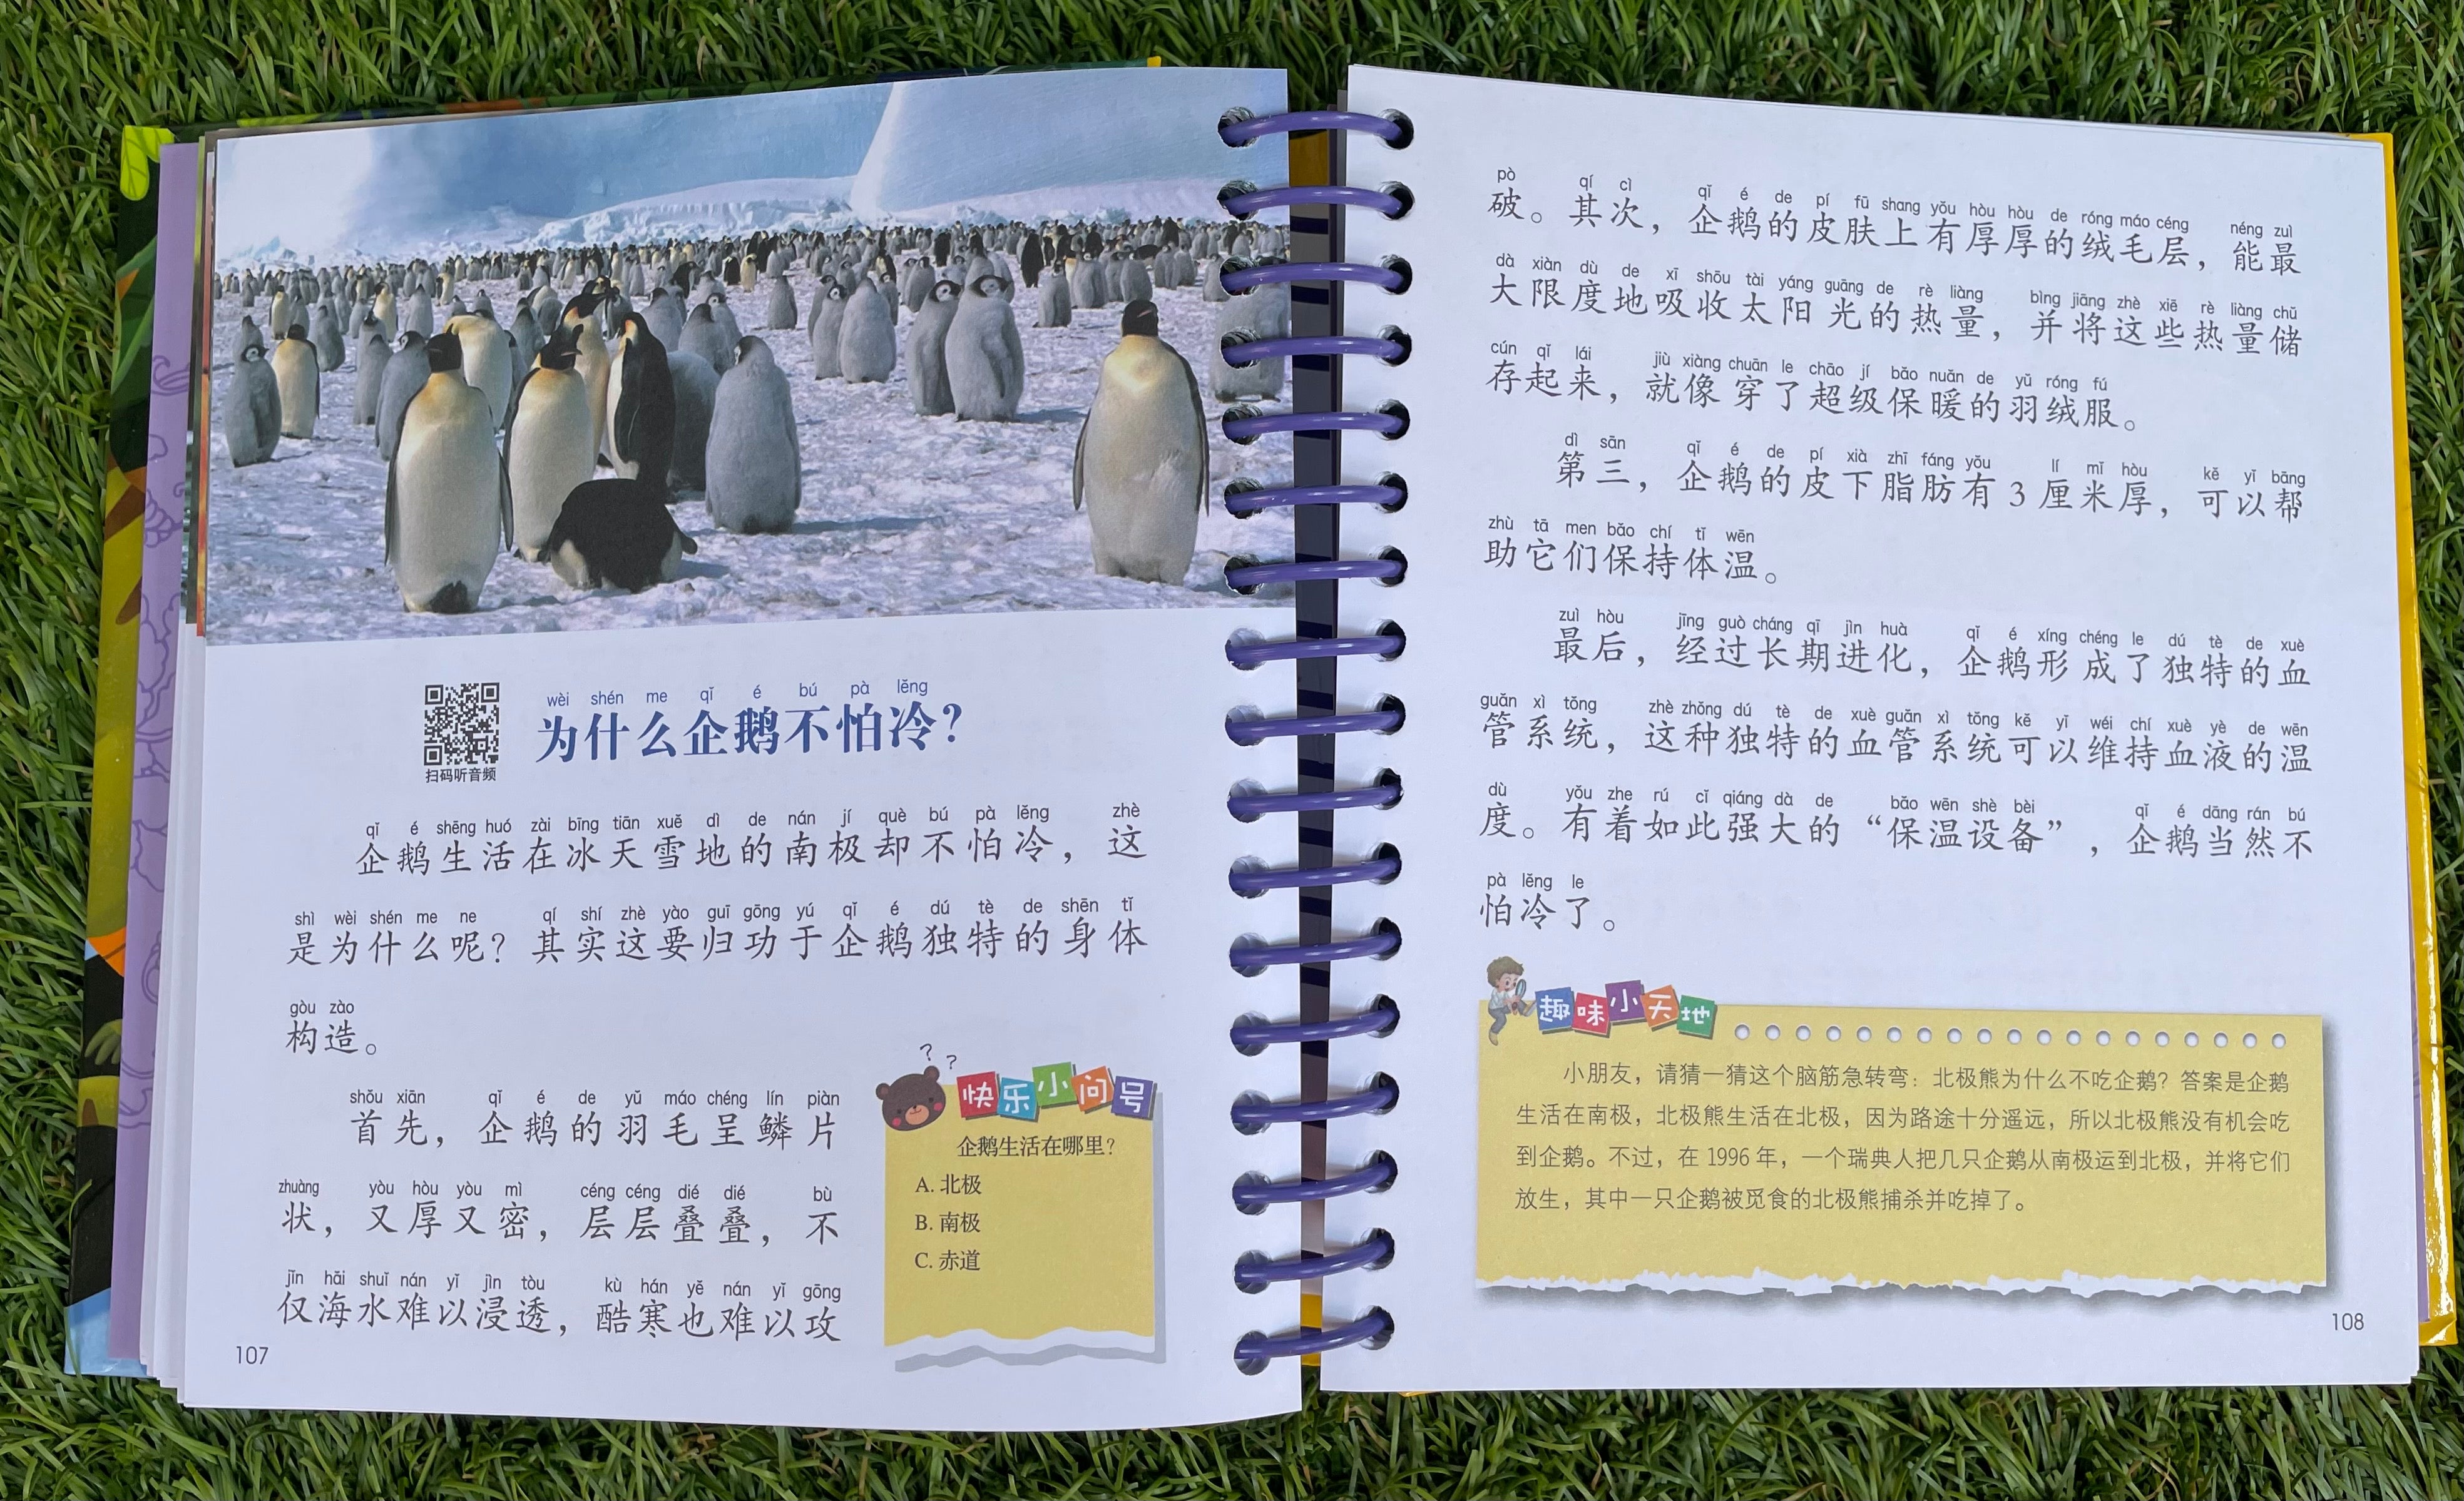 wèi shén me qǐ é bú pà lěng
为什么企鹅不怕冷？
扫码听音频
qǐ é shēng huó zài bīng tiān xuě dì de nán jí què bú pà lěng zhè
企鹅生活在冰天雪地的南极却不怕冷，这
shì wèi shén me ne qí shí zhè yào guī gōng yú qǐ é dú tè de shēn tǐ
是为什么呢？其实这要归功于企鹅独特的身体
gòu zào
构造。
shǒu xiān qǐ é de yǔ máo chéng lín piàn
首先，企鹅的羽毛呈鳞片
zhuàng yòu hòu yòu mì céng céng dié dié bù
状，又厚又密，层层叠叠，不
jǐn hǎi shuǐ nán yǐ jìn tòu kù hán yě nán yǐ gōng
仅海水难以浸透，酷寒也难以攻
? ?
快乐小问号
企鹅生活在哪里？
A. 北极
B. 南极
C. 赤道
107
pò qí cì qǐ é de pí fū shang yǒu hòu hòu de róng máo céng néng zuì
破。其次，企鹅的皮肤上有厚厚的绒毛层，能最
dà xiàn dù de xī shōu tài yáng guāng de rè liàng bìng jiāng zhè xiē rè liàng chǔ
大限度地吸收太阳光的热量，并将这些热量储
cún qǐ lái jiù xiàng chuān le chāo jí bǎo nuǎn de yǔ róng fú
存起来，就像穿了超级保暖的羽绒服。
dì sān qǐ é de pí xià zhī fáng yǒu lí mǐ hòu kě yǐ bāng
第三，企鹅的皮下脂肪有3厘米厚，可以帮
zhù tā men bǎo chí tǐ wēn
助它们保持体温。
zuì hòu jīng guò cháng qī jìn huà qǐ é xíng chéng le dú tè de xuè
最后，经过长期进化，企鹅形成了独特的血
guǎn xì tǒng zhè zhǒng dú tè de xuè guǎn xì tǒng kě yǐ wéi chí xuè yè de wēn
管系统，这种独特的血管系统可以维持血液的温
dù yǒu zhe rú cǐ qiáng dà de bǎo wēn shè bèi qǐ é dāng rán bú
度。有着如此强大的“保温设备”，企鹅当然不
pà lěng le
怕冷了。
趣味小天地
小朋友，请猜一猜这个脑筋急转弯：北极熊为什么不吃企鹅？答案是企鹅
生活在南极，北极熊生活在北极，因为路途十分遥远，所以北极熊没有机会吃
到企鹅。不过，在1996年，一个瑞典人把几只企鹅从南极运到北极，并将它们
放生，其中一只企鹅被觅食的北极熊捕杀并吃掉了。
108